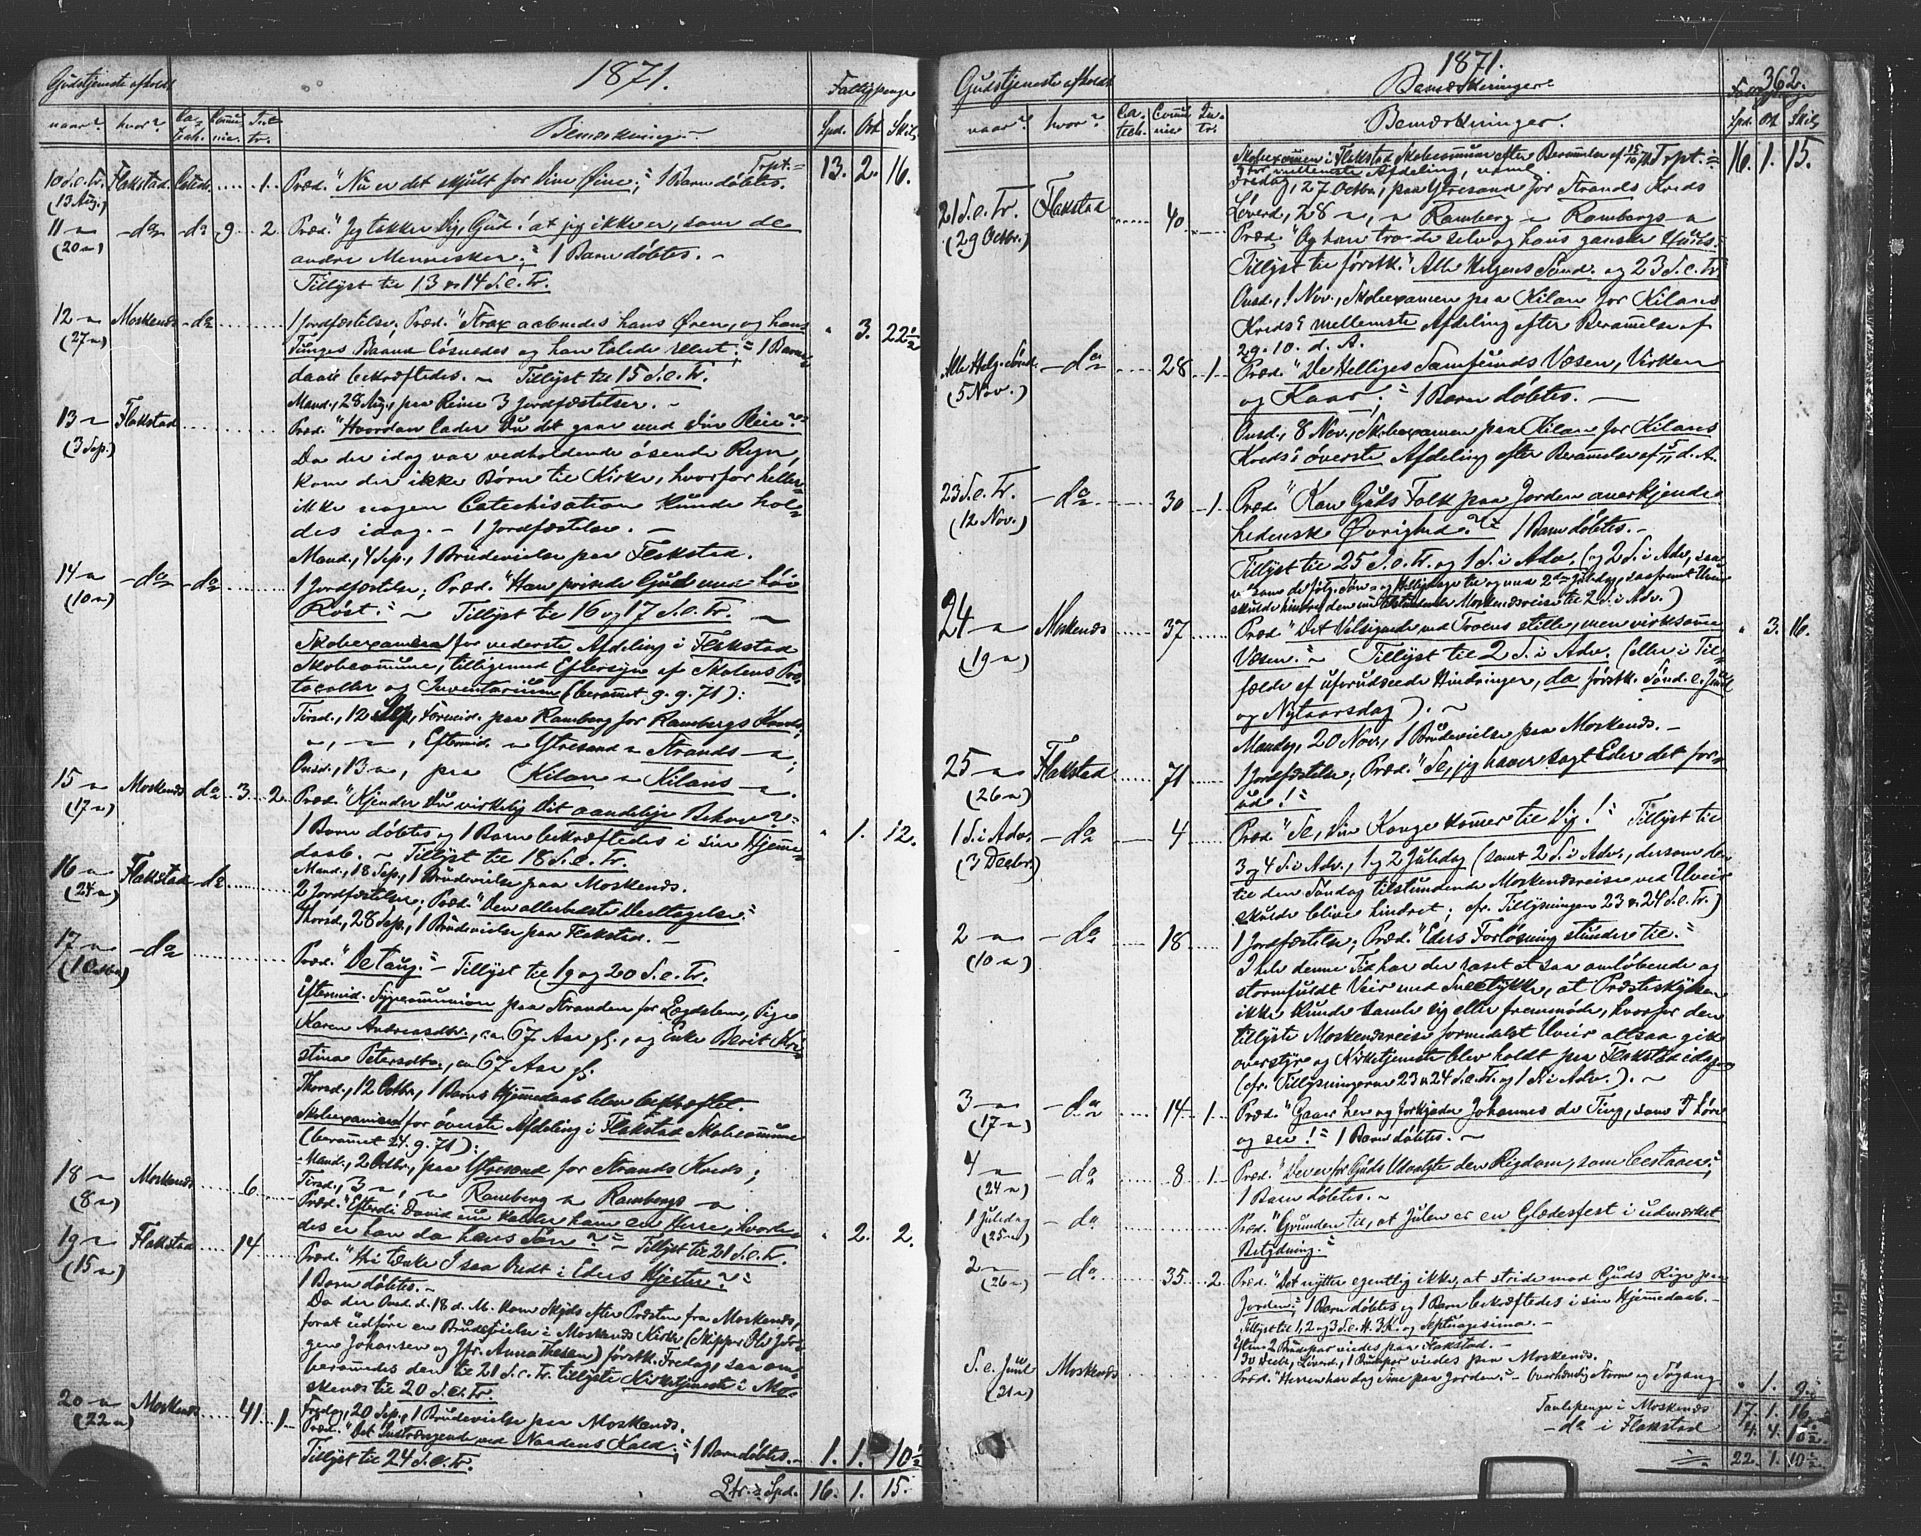 Gudstjeneste afholdt
1871.
Fattigpenge
naar? hvor? Catech. Communic. Intr.
Bemærkninger.
Spd. Ort Skill.
Trpt. 13. 2. 16.
10 S.e.Tr. Flakstad. Catech. 1. Præd. "Nu er det skjult for Dine Øine"; 1 Barn døbtes.
(13 Aug.)
11 - -do- -do 9 2. Præd. "Jeg takker Dig, Gud! at jeg ikke er, som de
(20 -)
andre Mennesker"; 1 Barn døbtes. -
Tillyst til 13 & 14 S.e.Tr.
12 - Moskenæs -do 1 Jordfæstelse; Præd. "Strax aabnedes hans Øren, og hans 3. 22½
(27 -)
Tunges Baand løsnedes og han talede ret"; 1 Barne-
daab bekræftedes. - Tillyst til 15 S.e.Tr.
Mand., 28 Aug., paa Reine 3 Jordfæstelser. -
13 - Flakstad Præd. "Hvordan lader Du det gaa med Din Rein?"
(3 Sep.)
Da der idag var vedholdende øsende Regn,
kom der ikke Børn til Kirke, hvorfor heller
ikke nogen Catechisation kunde hol-
des idag. - 1 Jordfæstelse. -
Mand., 4 Sep., 1 Brudevielse paa Flakstad.
14 - -do- -do- 1 Jordfæstelse; Præd. "Han prisede Gud med høi
(10 -)
Røst." - Tillyst til 16 og 17 S.e.Tr. -
Skoleexamen for nederste Afdeling i Flakstad
Skolecommune, tilligemed Eftersyn af Skolens Pro-
tocoller og Inventarium (beramet 9. 9. 71):
Tirsd., 12 Sep., Formid. paa Ramberg for Rambergs Kreds;
-, -, Eftermid. - Ytresand - Strands -;
Onsd., 13 -, paa Kilan - Kilans -.
15 - Moskenæs do 3. 2. Præd. "Kjender Du virkelig Dit aandelige Behov?"
(17 -)
1 Barn døbtes og 1 Barn bekræftedes i sin Hjemme- 1. 12.
daab. - Tillyst til 18 S.e.Tr.
Mand., 18 Sep., 1 Brudevielse paa Moskenæs.
16 - Flakstad do 2 Jordfæstelser; Præd. "Den allerbedste Deeltagelse."
(24 -)
Thorsd., 28 Sep., 1 Brudevielse paa Flakstad. -
17 - -do Præd. "De Taug." - Tillyst til 19 og 20 S.e.Tr.
(1 Octbr.)
Eftermid. Sygecommunion paa Stranden for Lægdslem, Pige
Karen Andreasdtr., ca. 67 Aar gl., og Enke Berit Kri-
stina Petersdtr., ca. 67 Aar gl.
Thorsd., 12 Octbr., 1 Barns Hjemmedaab blev bekræftet.
Skoleexamen for øverste Afdeling i Flakstad Skolecommune
(beramet 24. 9. 71):
Mand., 2 Octbr., paa Ytresand for Strands Kreds;
Tirsd., 3 -, - Ramberg - Rambergs -
18 - Moskenæs 6 Præd. "Efterdi David nu kalder ham en Herre, hvorle-
(8 -)
des er han da hans Søn?" - Tillyst til 21 S.e.Tr. 2. 2.
19 - Flakstad 14 Præd. "Hvi tænke I saa Ondt i Eders Hjerter?"
(15 -)
1 Barn døbtes. -
Da der Onsd. d. 18 d. M. kom Skyds efter Præsten fra Moskenæs,
forat udføre en Brudevielse i Moskenæs Kirke (Skipper Ole Jør-
gen Johansen og Jfr. Anna Thesen) førstk. Fredag, saa om-
beramedes den til 21 S.e.Tr. tillyste Kirketjeneste i Mo-
skenæs til 20 S.e.Tr.
Fredag, 20 Sep., 1 Brudevielse paa Moskenæs.
20 - Moskenæs 41 1 Præd. "Det Indtrængende ved Naadens Kald"; 1 Barn døbtes. - 1. 1. 10½
(22 -)
Tillyst til 24 S.e.Tr.
Ltr. Spd. 16. 1. 15.
Gudstjeneste afholdt
1871.
362.
Bemærkninger.
naar? hvor? Catech. Communic. Intr.
Bemærkninger.
Spd. Ort Skill.
Skoleexamen i Flakstad Skolecommune efter Berammelse af 15/10 71 Trpt. 16. 1. 15.
for mellemste Afdeling, nemlig
Fredag, 27 Octbr., paa Ytresand for Strands Kreds
21 S.e.Tr. Flakstad 40 Løverd., 28 -, - Ramberg - Rambergs -
(29 Octbr.)
Præd. "Og han troede selv og hans ganske Huus."
Tillyst til førstk. Alle Helgens Sønd. og 23 S.e.Tr.
Onsd., 1 Nov., Skoleexamen paa Kilan for Kilans
Kreds's mellemste Afdeling efter Berammelse af
29. 10. d. A.
Alle Helg. Sønd. -do- 28 1. Præd. "De Helliges Samfunds Væsen, Virken
(5 Nov.)
og Kaar"; 1 Barn døbtes. -
Onsd., 8 Nov., Skoleexamen paa Kilan for Kilans
Kreds's øverste Afdeling efter Berammelse af 5/11 d. A.
23 S.e.Tr. -do- 30 1. Præd. "Kan Guds Folk paa Jorden anerkjende
(12 Nov.)
hedensk Øvrighed?" 1 Barn døbtes. -
Tillyst til 25 S.e.Tr. og 1 S. i Adv. (og 2 S. i Adv., saa-
vel som de følg. Søn- og Helligdage til og med 2den Juledag, saafremt Uveir
skulde hindre den nu tilstundende Moskenæsreise til 2 S. i Adv.)
24 - Moskenæs 37 Præd. "Det Velsignede ved Troens stille, men virksomme 3. 16.
(19 -)
Væsen." - Tillyst til 2 S. i Adv. (eller i Til-
fælde af uforudseede Hindringer, da førstk. Sønd. e. Juul
og Nytaarsdag). -
Mandag, 20 Nov., 1 Brudevielse paa Moskenæs. -
25 - Flakstad 71 1 Jordfæstelse; Præd. "Se, jeg haver sagt Eder det for-
(26 -)
ud!"
1 S. i Adv. -do- 4 Præd. "Se, Din Konge kommer til Dig!" Tillyst til
(3 Decbr.)
3 og 4 S. i Adv., 1 og 2 Juledag (samt 2 S. i Adv., dersom den
til den Søndag tilstundende Moskenæsreise ved Uveir
skulde blive hindret; cfr. Tillysningen 23 & 24 S.e.Tr.)
2 - -do- 18 1 Jordfæstelse; Præd. "Eders Forløsning stunder til."
(10 -)
I hele denne Tid har der raset et saa omløbende og
stormfuldt Veir med Sneetykke, at Præsteskydsen
ikke kunde samle sig eller fremmøde, hvorfor den
tillyste Moskenæsreise formedelst Uveir altsaa gik
overstyr og Kirketjeneste blev holdt paa Flakstad idag
(cfr. Tillysningerne 23 & 24 S.e.Tr. og 1 S. i Adv.). -
3 - -do- 14 1 Præd. "Gaaer hen og forkynder Johannes de Ting, som I høre
(17 -)
og see!" 1 Barn døbtes. -
4 - -do 8 1 Præd. "Der er for Guds Udvalgte den Rigdom, som bestaaer";
(24 -)
1 Barn døbtes. -
1 Juledag -do Præd. "Grunden til, at Julen er en Glædesfest i udmærket
(25 -)
Betydning."
2 - -do 35 2 Præd. "Det nytter egentlig ikke, at stride mod Guds Rige paa
(26 -)
Jorden." 1 Barn døbtes og 1 Barn bekræftedes i sin Hjemmedaab. -
Tillyst til 1, 2 og 3 S.e.H.3K. og Septuagesima. -
2 Brudepar viedes paa Flakstad. -
30 Decbr., Løverd., 1 Brudepar viedes paa Moskenæs.
S. e. Juul Moskenæs Præd. "Herren har dog Sine paa Jorden." - Overhændig Storm og Søgang
(31 -)
Tavlepenge i Moskenæs 17. 1. 16
-do i Flakstad 4. 4. 10½.
22. 1. 10½